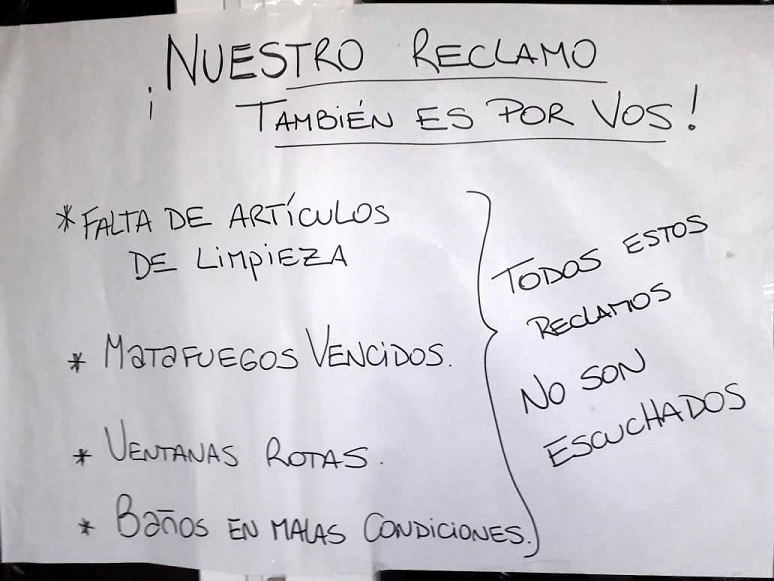 ¡NUESTRO RECLAMO
TAMBIÉN ES POR VOS!
* FALTA DE ARTÍCULOS
DE LIMPIEZA
* MATAFUEGOS VENCIDOS.
* VENTANAS ROTAS.
* BAÑOS EN MALAS CONDICIONES.
TODOS ESTOS
RECLAMOS
NO SON
ESCUCHADOS